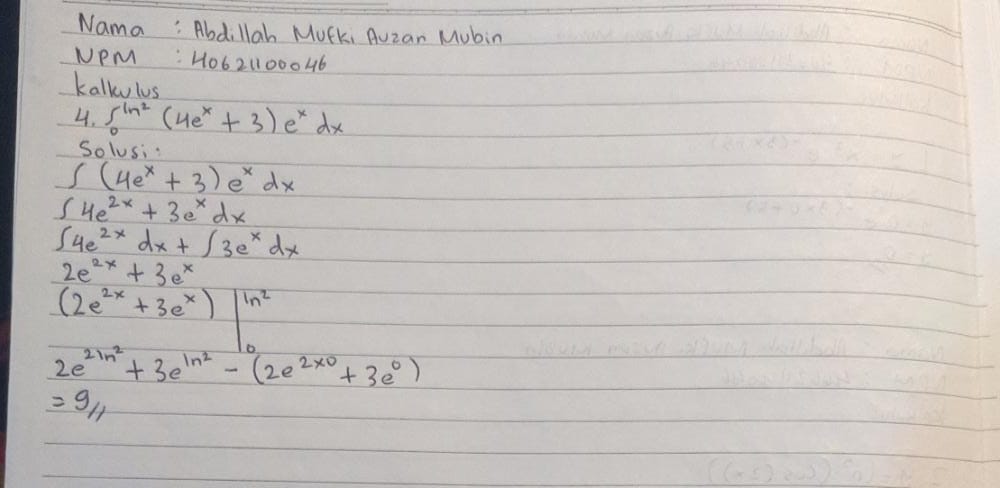 Nama : Abdillah Mufki Auzan Mubin
NPM : 40621100046
kalkulus
4. ∫₀^ln2 (4eˣ + 3) eˣ dx
Solusi:
∫ (4eˣ + 3) eˣ dx
∫ 4e²ˣ + 3eˣ dx
∫ 4e²ˣ dx + ∫ 3eˣ dx
2e²ˣ + 3eˣ
(2e²ˣ + 3eˣ) |₀^ln2
2e^2ln2 + 3e^ln2 - (2e^2×0 + 3e⁰)
= 9//